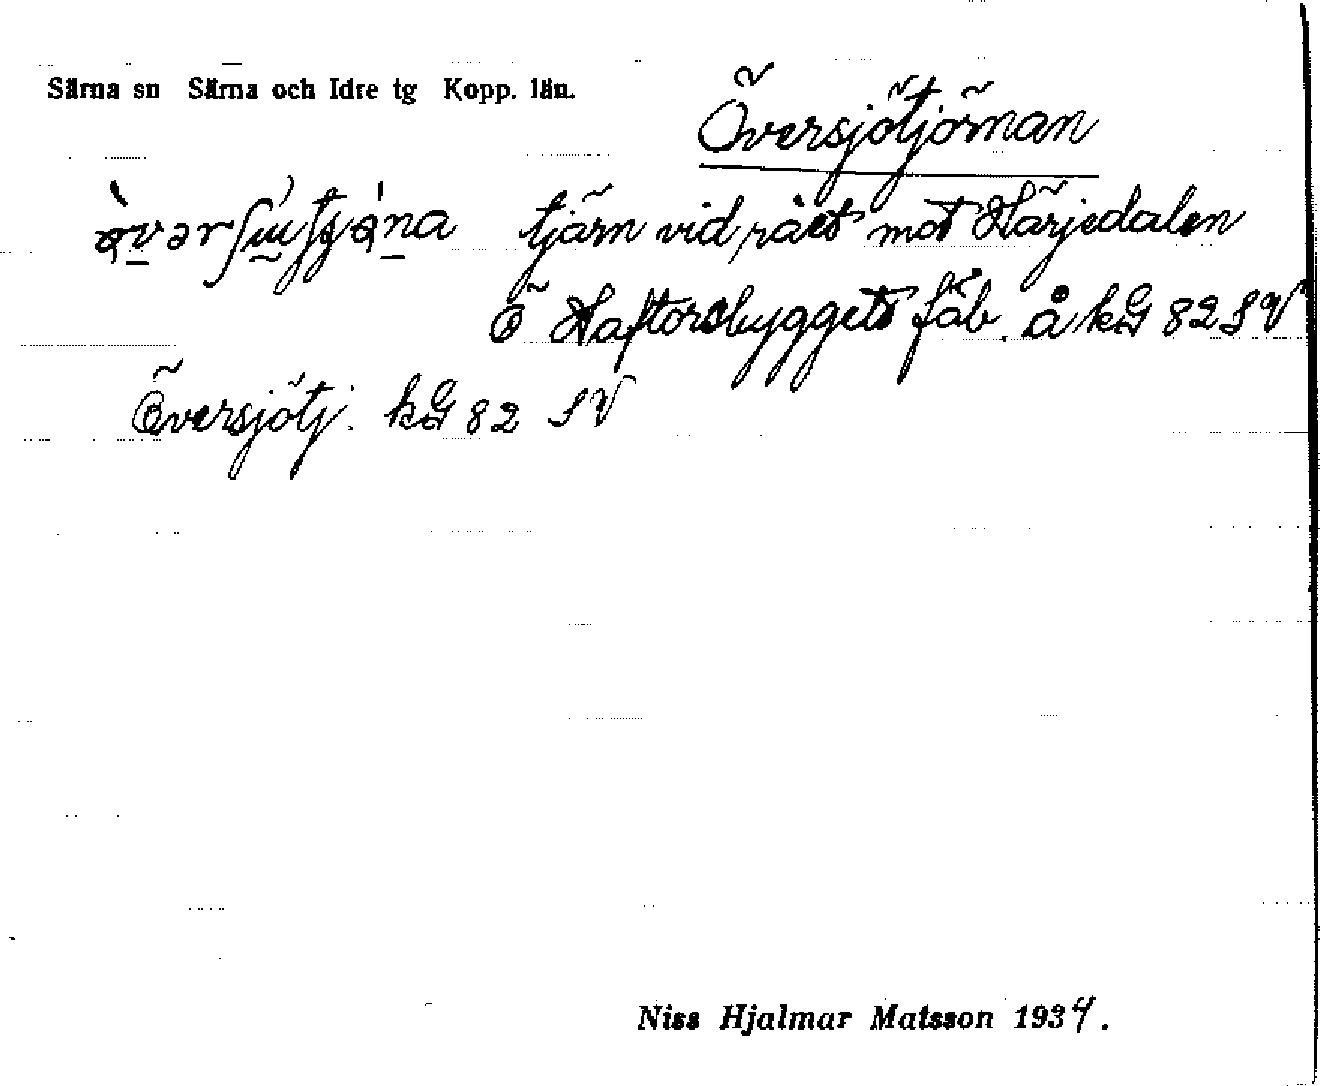 Särna sn Särna och Idre tg Kopp. län.
Översjötjörnan
tjärn vid rået mot Härjedalen
Ö Haftorsbyggets fäb. å kG 82 SV
Översjötj. kG 82 SV
Niss Hjalmar Matsson 1934.